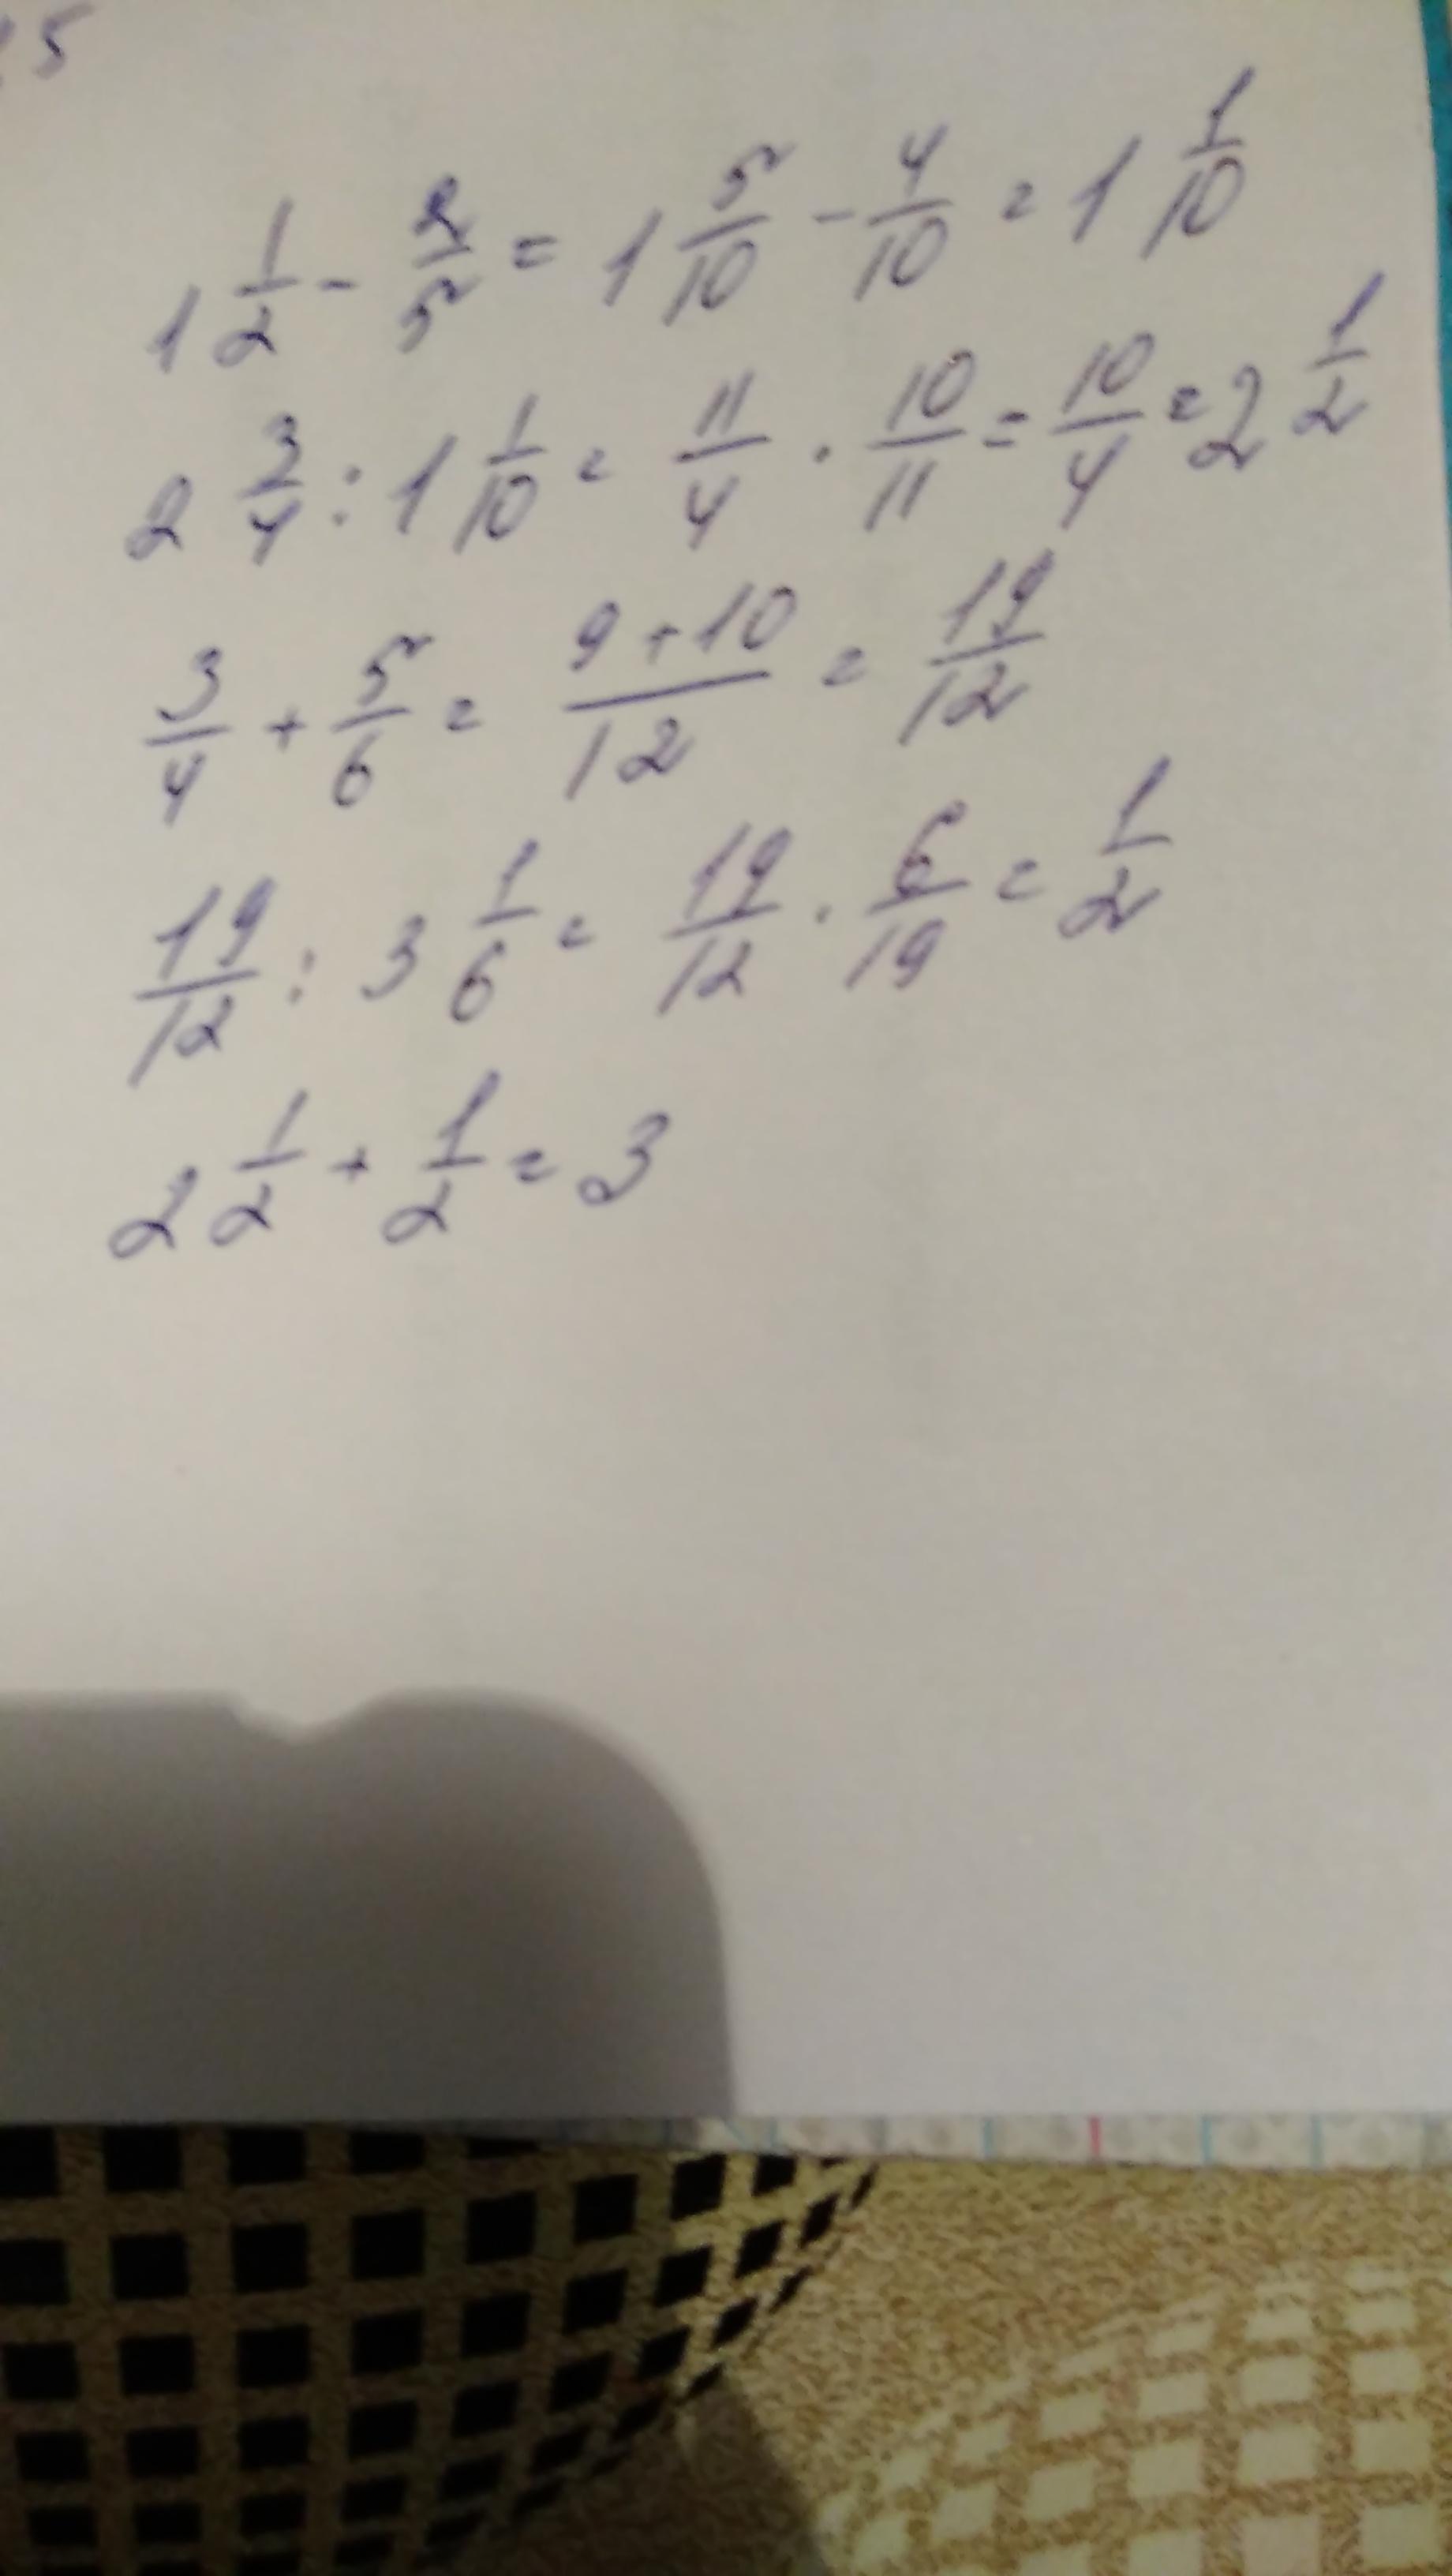 5
1 1/2 - 2/5 = 1 5/10 - 4/10 = 1 1/10
2 3/4 : 1 1/10 = 11/4 · 10/11 = 10/4 = 2 1/2
3/4 + 5/6 = 9+10/12 = 19/12
19/12 : 3 1/6 = 19/12 · 6/19 = 1/2
2 1/2 + 1/2 = 3